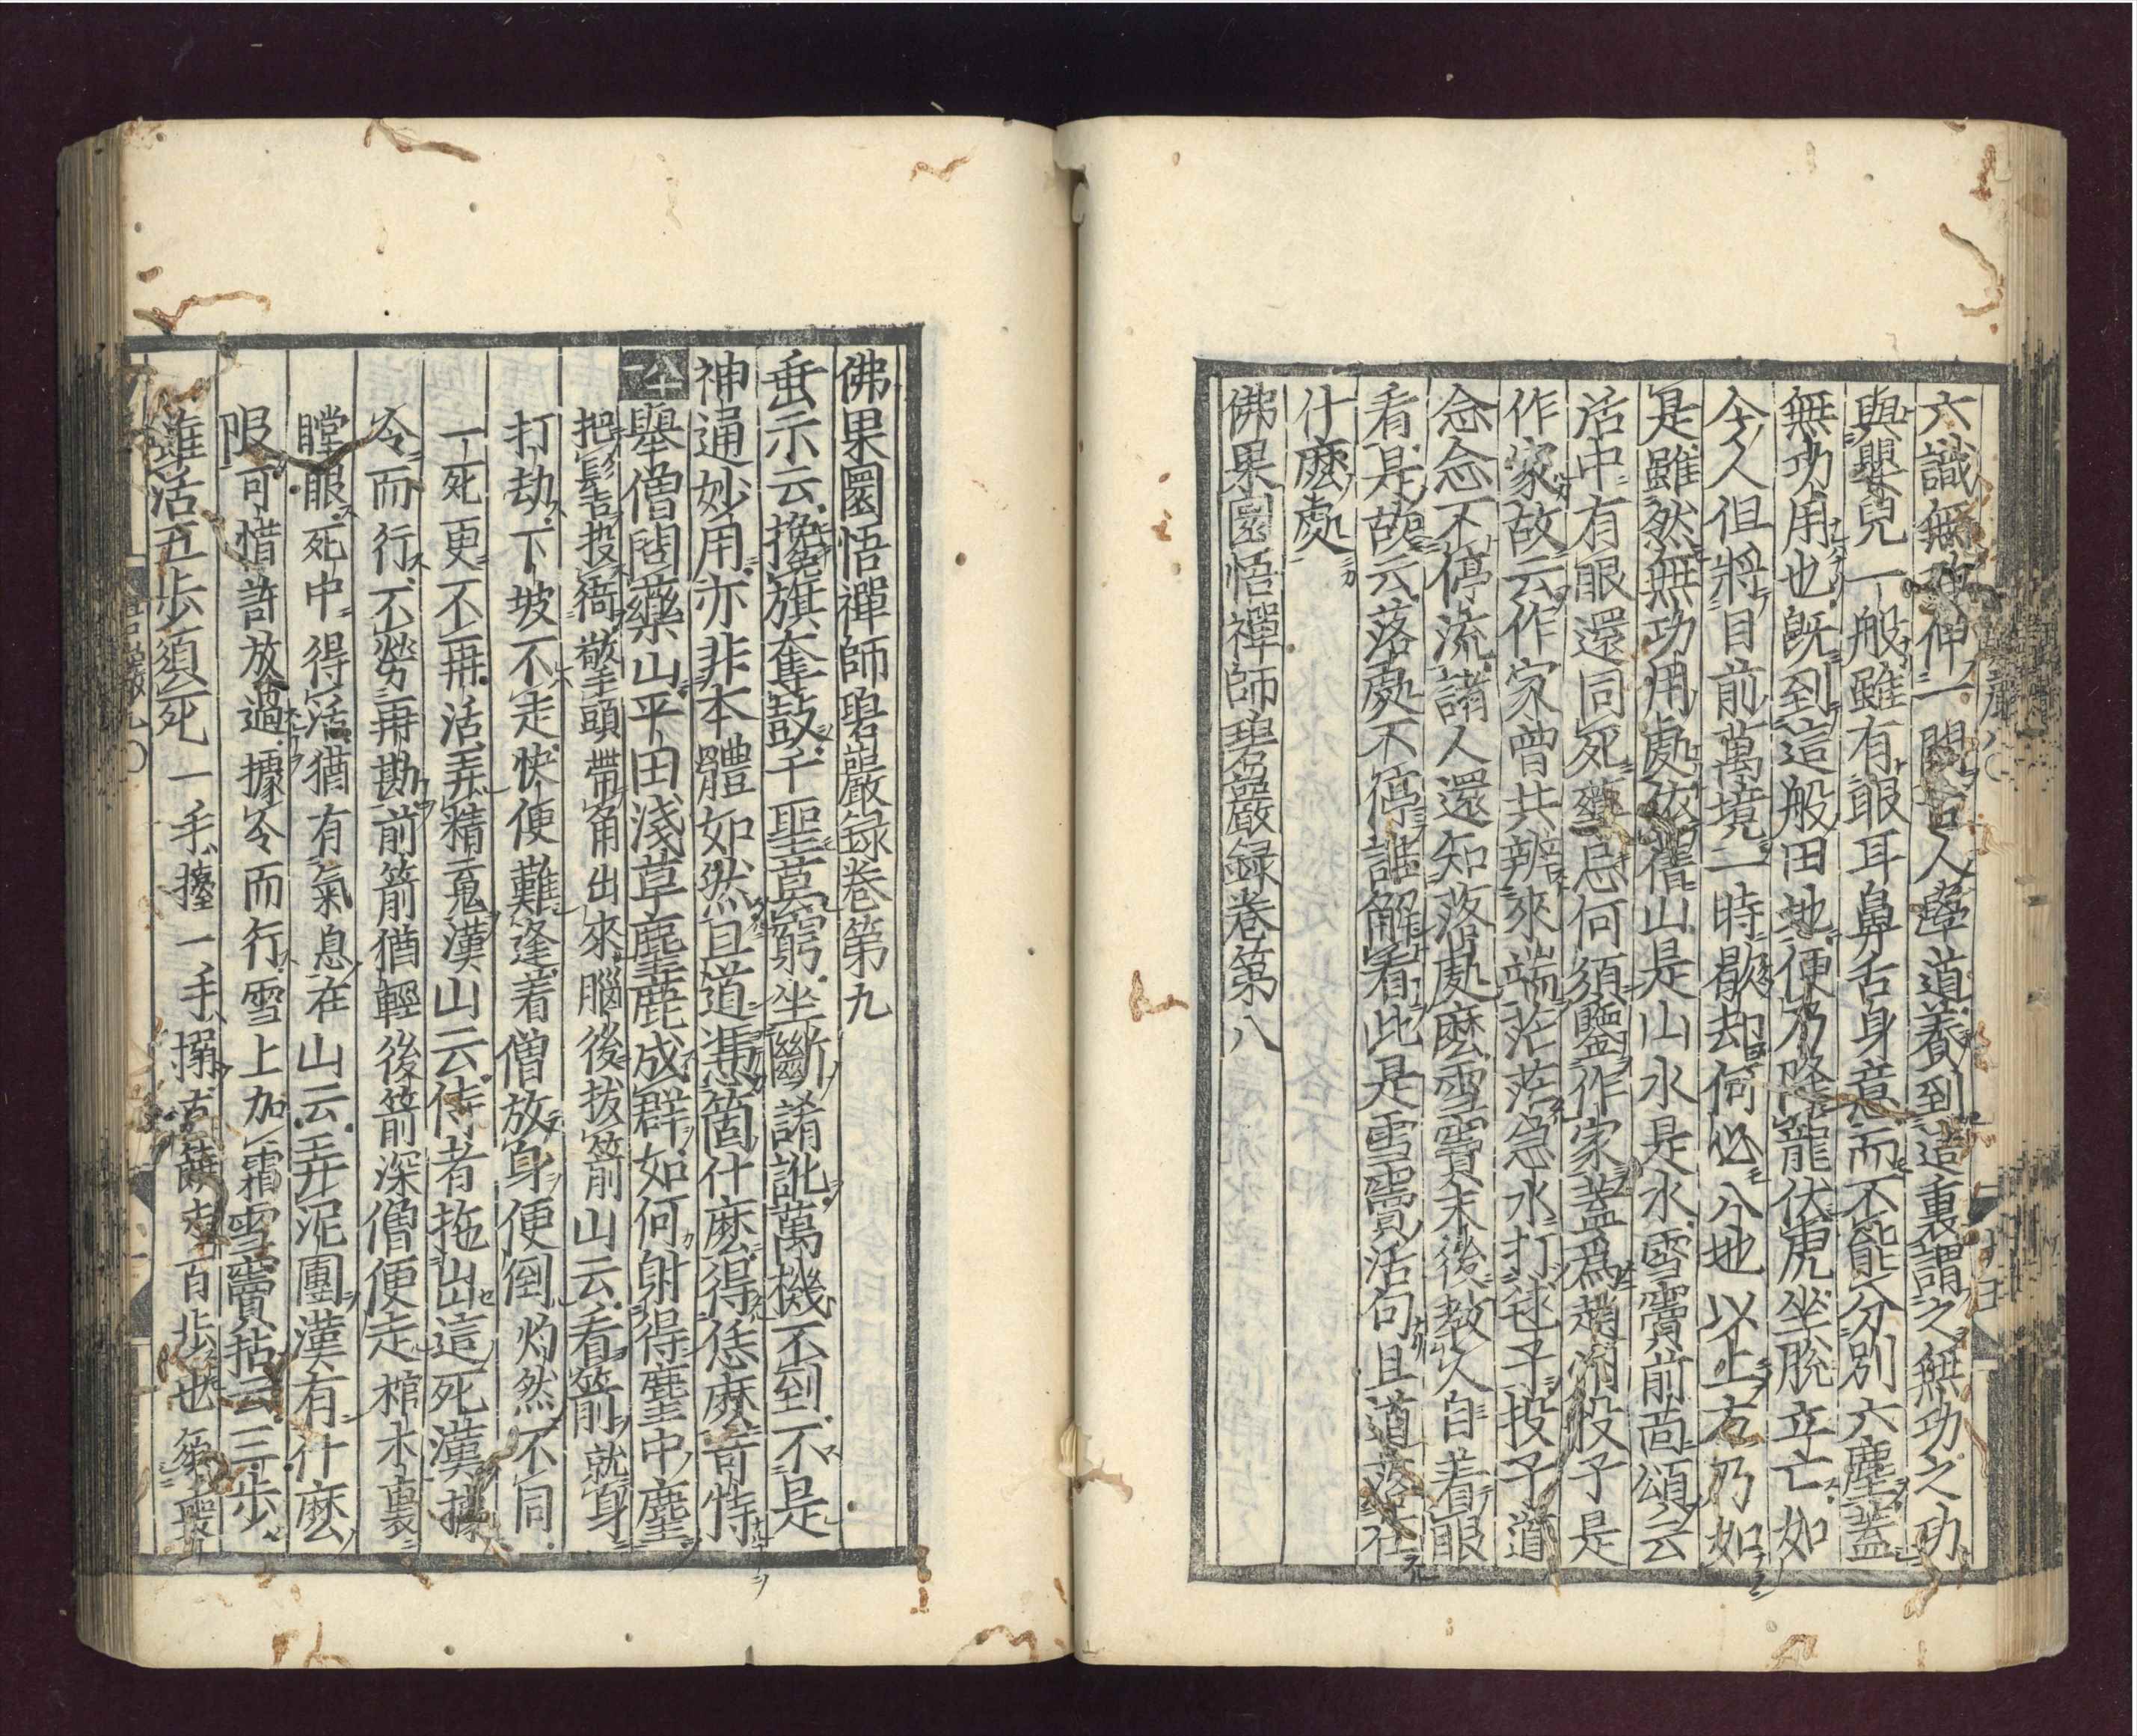 六識無功伸一問古人學道養到這裏謂之無功之功
與嬰兒一般雖有眼耳鼻舌身意而不能分別六塵蓋
無功用也既到這般田地便乃降龍伏虎坐脫立亡如
今人但將目前萬境一時歇却何必八地以上方乃如
是雖然無功用處依舊山是山水是水雪竇前面頌云
活中有眼還同死藥忌何須鑒作家蓋爲趙州投子是
作家故云作家曾共辨來端茫茫急水打毬子投子道
念念不停流諸人還知落處麽雪竇末後教人自着眼
看是故云落處不停誰解看此是雪竇活句且道落在
什麽處
佛果圜悟禪師碧巖録卷第八
佛果圜悟禪師碧巖録卷第九
垂示云攙旗奪鼓千聖莫窮坐斷誵訛萬機不到不是
神通妙用亦非本體如然且道憑箇什麽得恁麽奇特
舉僧問藥山平田淺草麈鹿成群如何射得麈中麈
把髻投衙擎頭帶角出來腦後拔箭山云看箭就身
打劫下坡不走快便難逢着僧放身便倒灼然不同
一死更不再活弄精魂漢山云侍者拖出這死漢據
令而行不勞再勘前箭猶輕後箭深僧便走棺木裏
瞠眼死中得活猶有氣息在山云弄泥團漢有什麽
限可惜許放過據令而行雪上加霜雪竇拈云三步
雖活五步須死一手擡一手搦直饒走百步也須